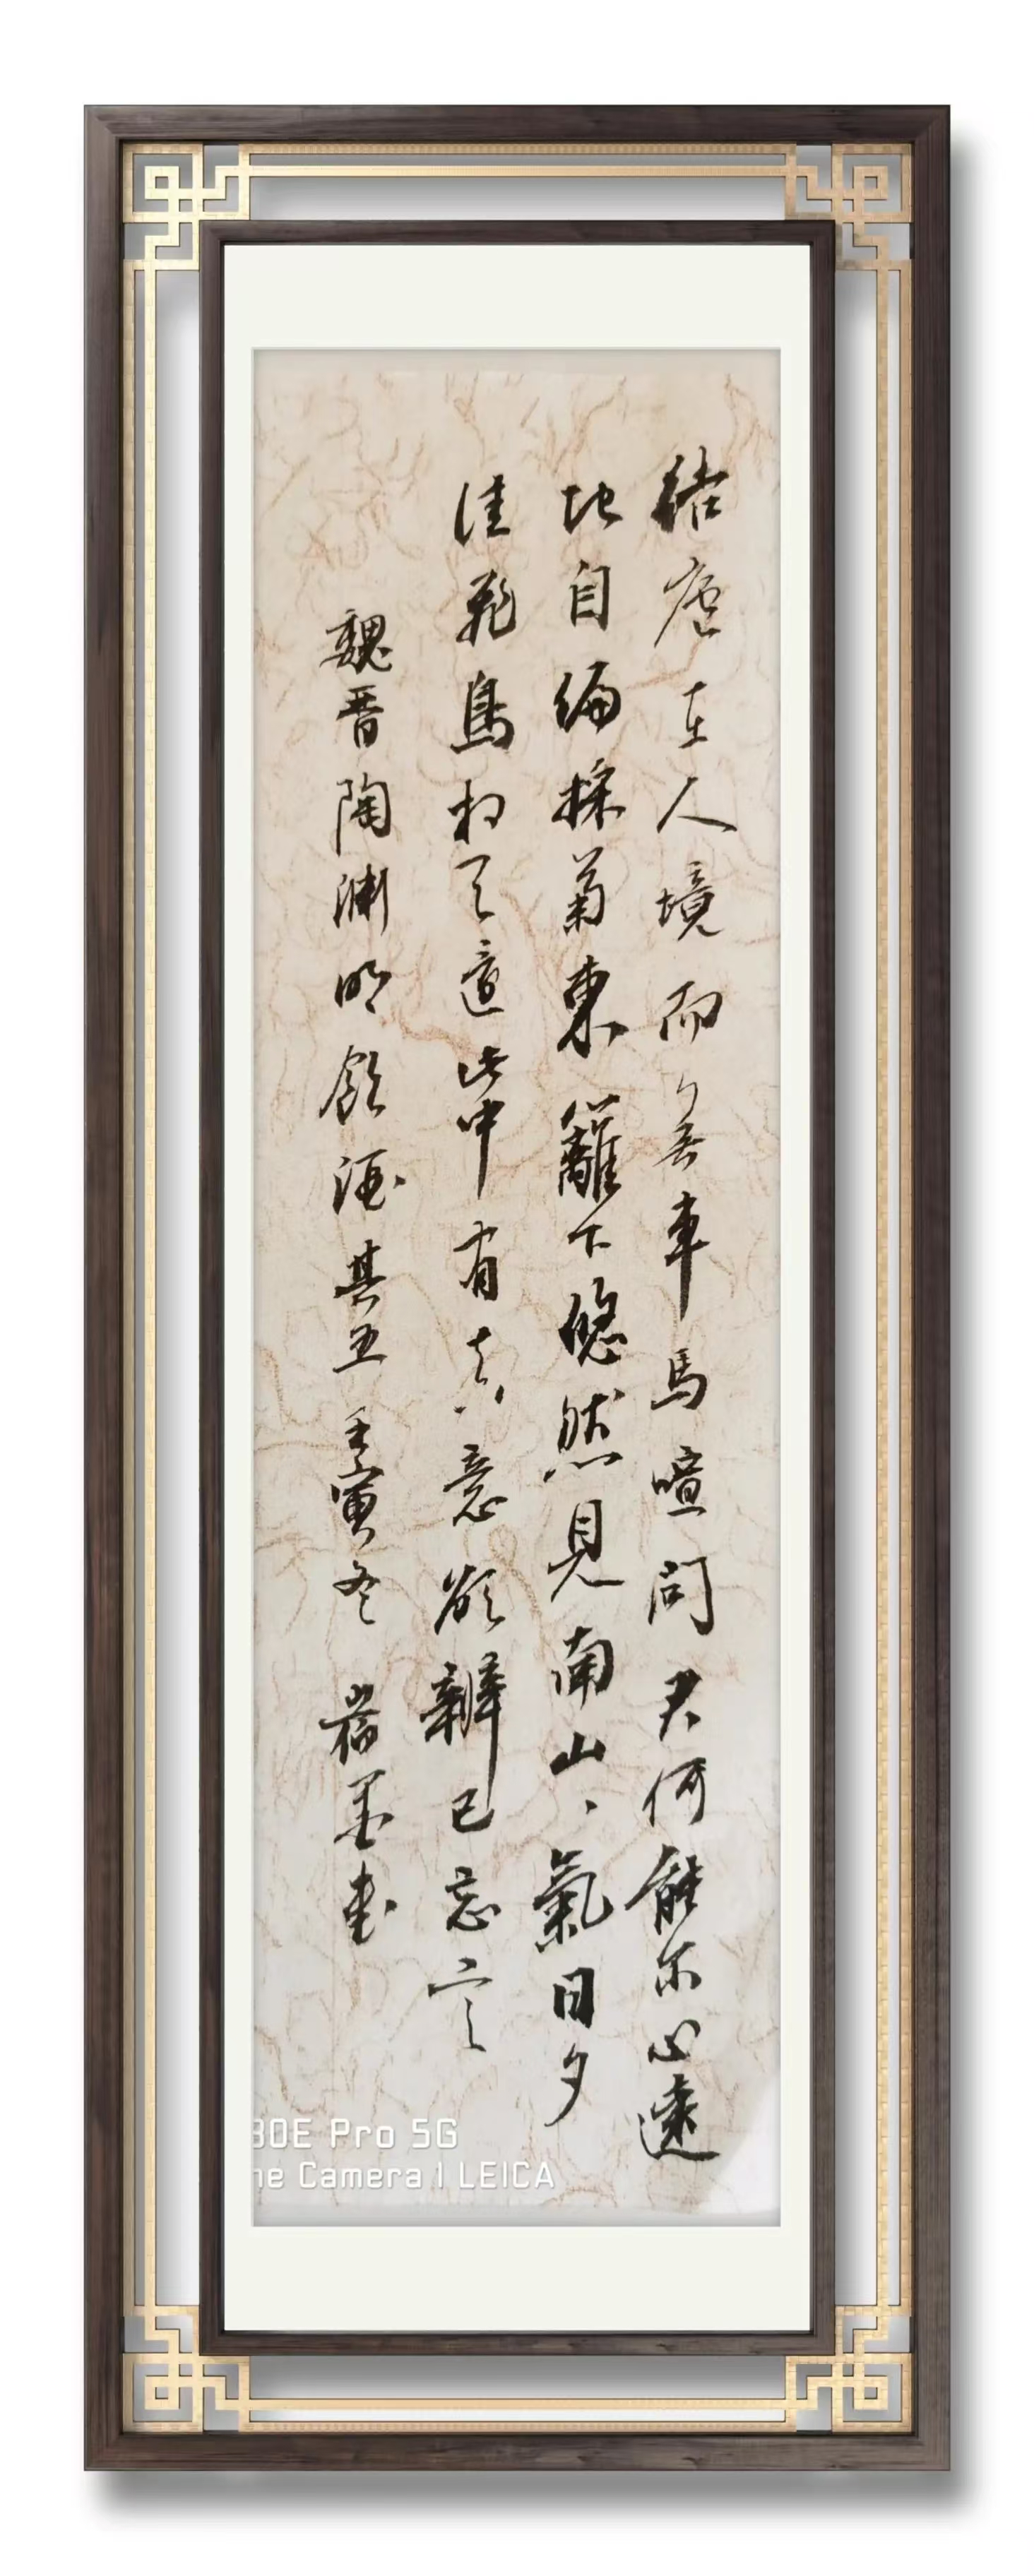 结庐在人境而无车马喧问君何能尔心远
地自偏採菊東籬下悠然見南山山氣日夕
佳飛鳥相与還此中有真意欲辨已忘言
魏晋陶渊明飲酒其五壬寅冬 墨书
30E Pro 5G
ne Camera | LEICA